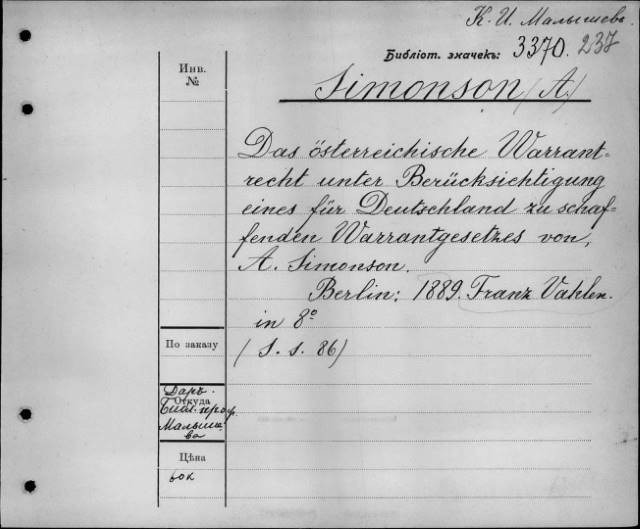 К. И. Малышевъ.
Библіот. значекъ: 3370. 237
Инв.
№
Simonson (A.)
Das österreichische Warrant-
recht unter Berücksichtigung
eines für Deutschland zu schaf-
fenden Warrantgesetzes von,
A. Simonson.
Berlin: 1889. Franz Vahlen.
in 8º
По заказу
(S. s. 86)
Даръ.
Откуда
Библ. проф.
Малыше
ва
Цѣна
60к